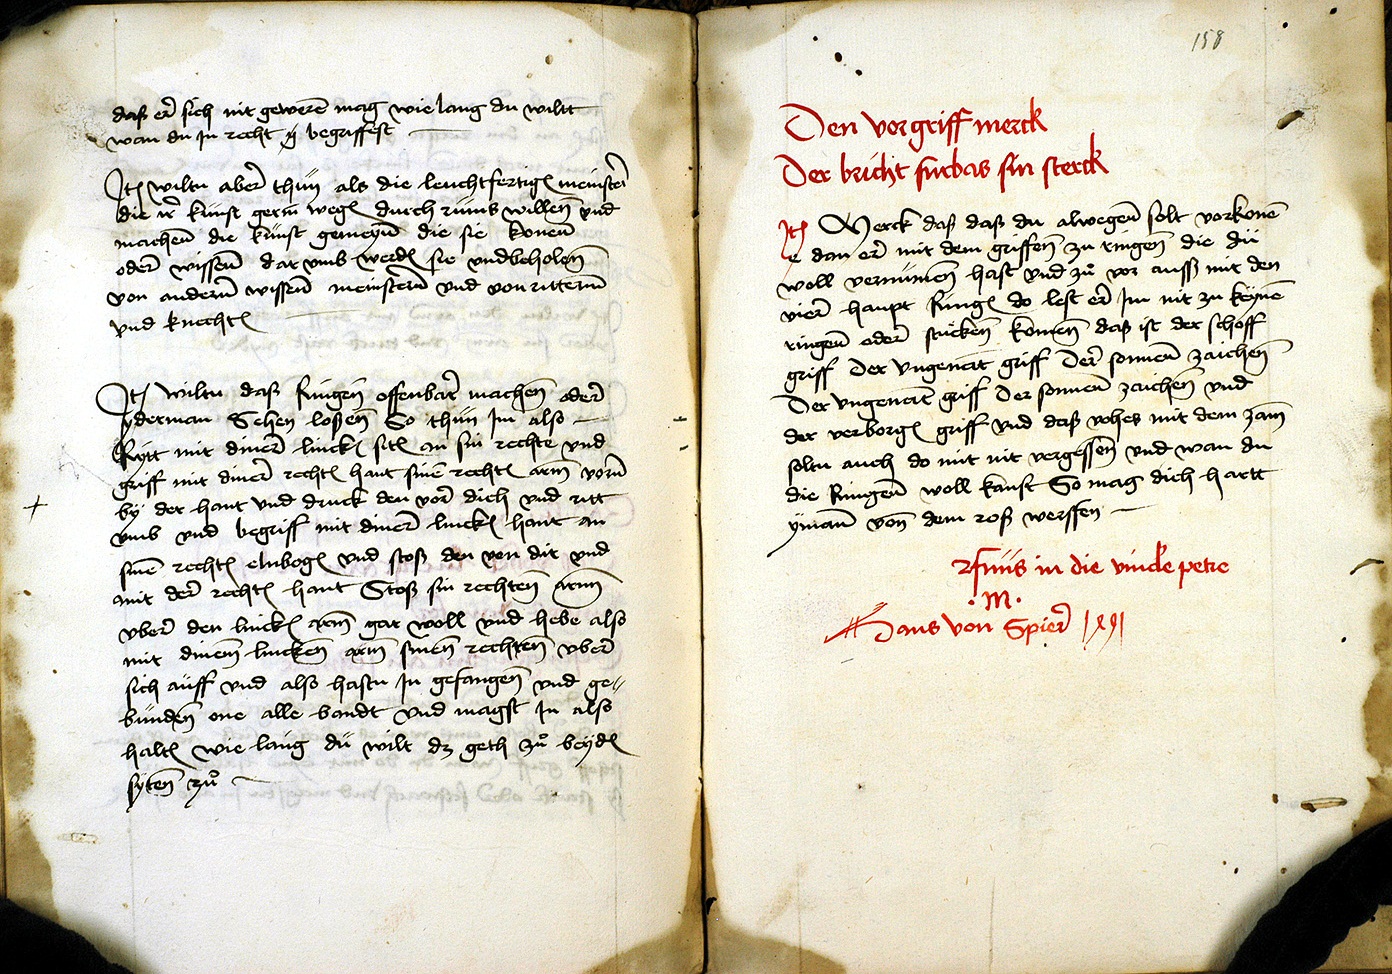 daß er sich nit geweren mag wie lang du wiltt
wan du In recht begriffest
Itē wiltu aber thün als die leuchtfertigē meinster
die ir künst gerin wegē durch rüms willen vnd
machenn die künst gemeyn die sie konen
oder wissenn dar vmb werdē sie vndbeholen
von andern wissen meinstern vnd von rittern
vnd knechtē
Itē wiltu daß Ringen offenbar machen oder
yderman Sehen loßen So thün Im also
Rÿtt mit diner linckē sitē an sin rechte vnd
griff mit diner rechtē hant sine rechtē arm vorn
by der hant vnd druck den vor dich vnd ritt
vmb vnd begriff mit diner linckē hant an
sine rechtē elnbogē vnd stoß den von dir vnd
mit der rechtē hant Stoß sin rechten arm
vber den linckē arm gar woll vnd hebe also
mit dinem lincken arm sinen rechten vber
sich aüff vnd also hastu In gefangen vnd ge-
bünden one alle bandt vnd magst In also
haltē wie lang dü wilt dz geth zu beydē
syten zu
158
Den vorgriff merck
Der bricht fürbas sin sterck
Itē Merck daß daß du alwegen solt vorkonē
e dan er mit dem griffen zu ringen die dü
woll vernümen hast vnd zu vor auss mit den
vier haupt Ringē do lest er Im nit zu keyne
ringen oder stücken komen daß ist der schoff
griff Der vngenāt griff Der sonnen zaichen
Der vngenāt griff Der sonnen zaichen vnd
der verborgē griff vnd daß vohes mit dem zam
soltu auch do mit nit vergessen vnd wan du
die Ringen woll kanst So mag dich hartt
ymanī von dem roß werffen
in die vincle petre
·M·
Hans von Spier 1491